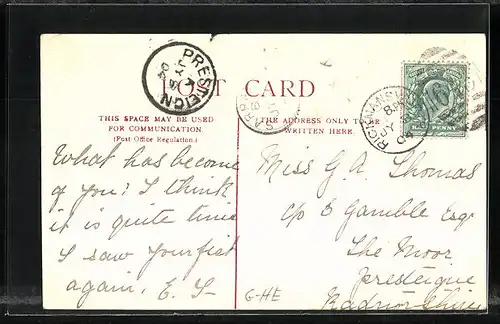 POST CARD
THIS SPACE MAY BE USED
FOR COMMUNICATION.
(Post Office Regulation.)
THE ADDRESS ONLY TO BE
WRITTEN HERE.
PRESTEIGN
A
JY 5
04
HALFPENNY
What has become
of you? I think
it is quite time
I saw your fist
again, E. S
Miss G. A. Thomas
c/o E Gamble Esq
The Moor
Presteigne
Radnorshire
G-HE